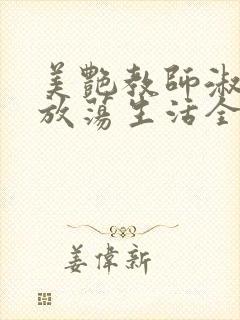 美艷教師淑
放蕩生活全
姜偉新